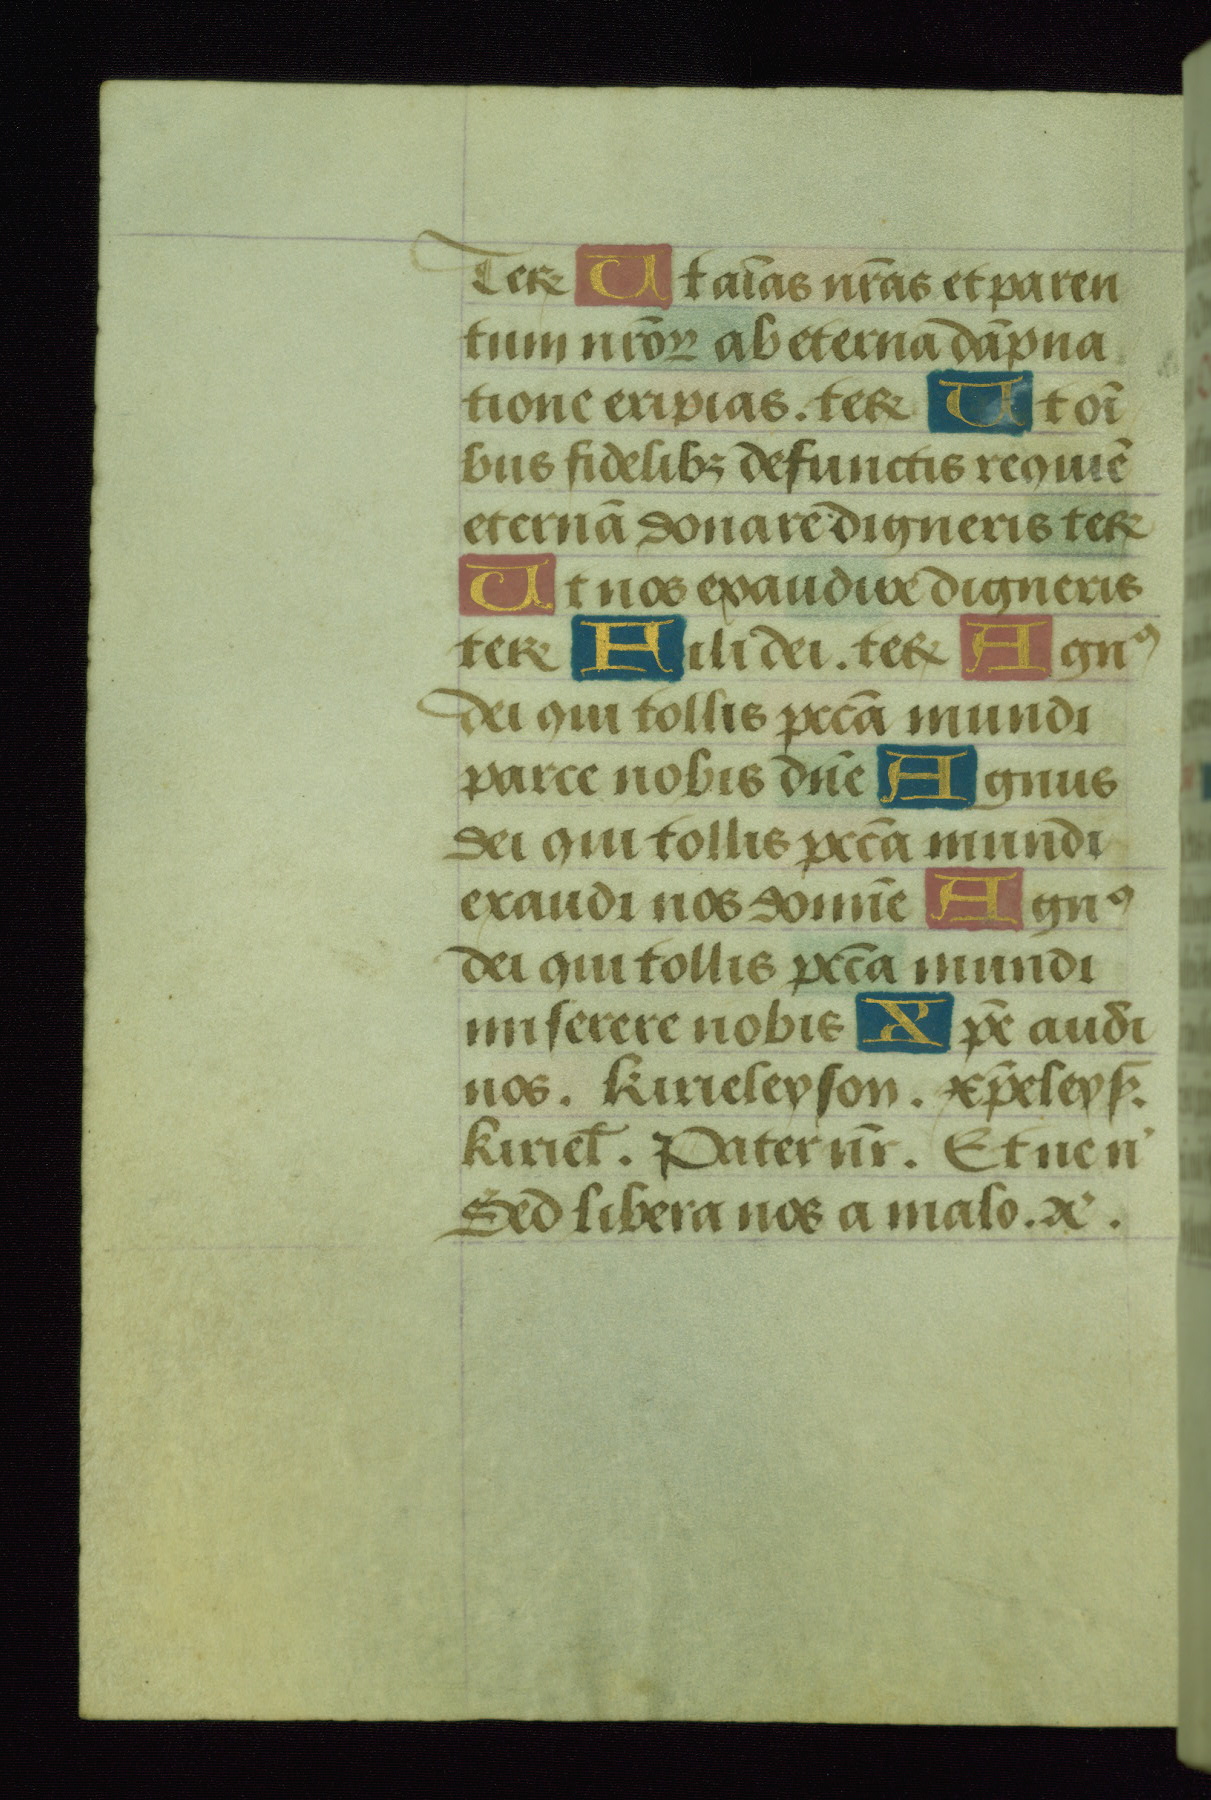 Teꝶ Ut aīas nr̄as et paren
tum nr̄oꝝ ab eterna dāpna
tione eripias. teꝶ Ut oī
bus fidelibꝫ defunctis requiē
eternā donare digneris teꝶ
Ut nos exaudire digneris
teꝶ Fili dei. teꝶ Agnꝰ
dei qui tollis pccā mundi
parce nobis dn̄e Agnus
dei qui tollis pccā mundi
exaudi nos domīe Agnꝰ
dei qui tollis pccā mundi
miserere nobis Xpē audi
nos. Kirieleyson. xp̄eleyſ.
kiriel̄. Pater nr̄. Et ne n̄
Sed libera nos a malo. a̾.